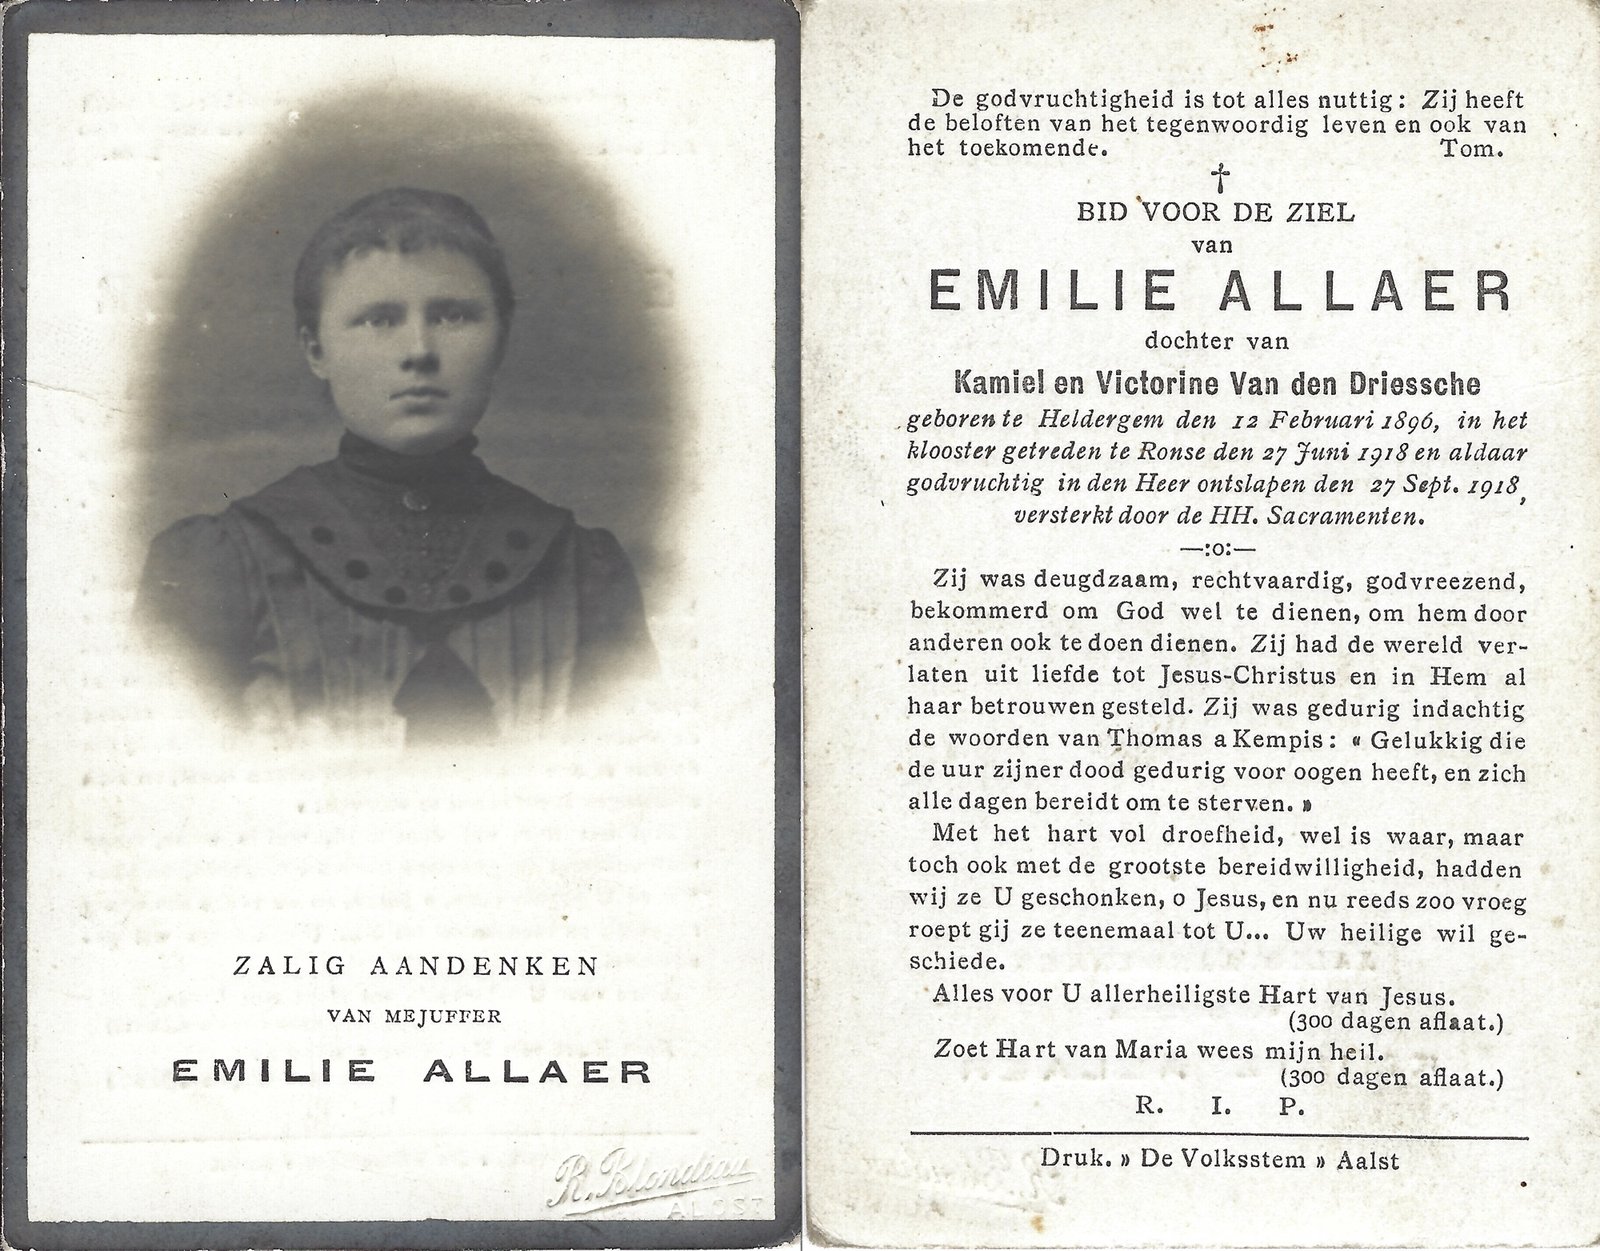 ZALIG AANDENKEN
VAN MEJUFFER
EMILIE ALLAER
R. Blondiau
ALOST
De godvruchtigheid is tot alles nuttig: Zij heeft
de beloften van het tegenwoordig leven en ook van
het toekomende. Tom.
†
BID VOOR DE ZIEL
van
EMILIE ALLAER
dochter van
Kamiel en Victorine Van den Driessche
geboren te Heldergem den 12 Februari 1896, in het
klooster getreden te Ronse den 27 Juni 1918 en aldaar
godvruchtig in den Heer ontslapen den 27 Sept. 1918,
versterkt door de HH. Sacramenten.
—:o:—
Zij was deugdzaam, rechtvaardig, godvreezend,
bekommerd om God wel te dienen, om hem door
anderen ook te doen dienen. Zij had de wereld ver-
laten uit liefde tot Jesus-Christus en in Hem al
haar betrouwen gesteld. Zij was gedurig indachtig
de woorden van Thomas a Kempis: « Gelukkig die
de uur zijner dood gedurig voor oogen heeft, en zich
alle dagen bereidt om te sterven. »
Met het hart vol droefheid, wel is waar, maar
toch ook met de grootste bereidwilligheid, hadden
wij ze U geschonken, o Jesus, en nu reeds zoo vroeg
roept gij ze teenemaal tot U... Uw heilige wil ge-
schiede.
Alles voor U allerheiligste Hart van Jesus.
(300 dagen aflaat.)
Zoet Hart van Maria wees mijn heil.
(300 dagen aflaat.)
R. I. P.
Druk. » De Volksstem » Aalst